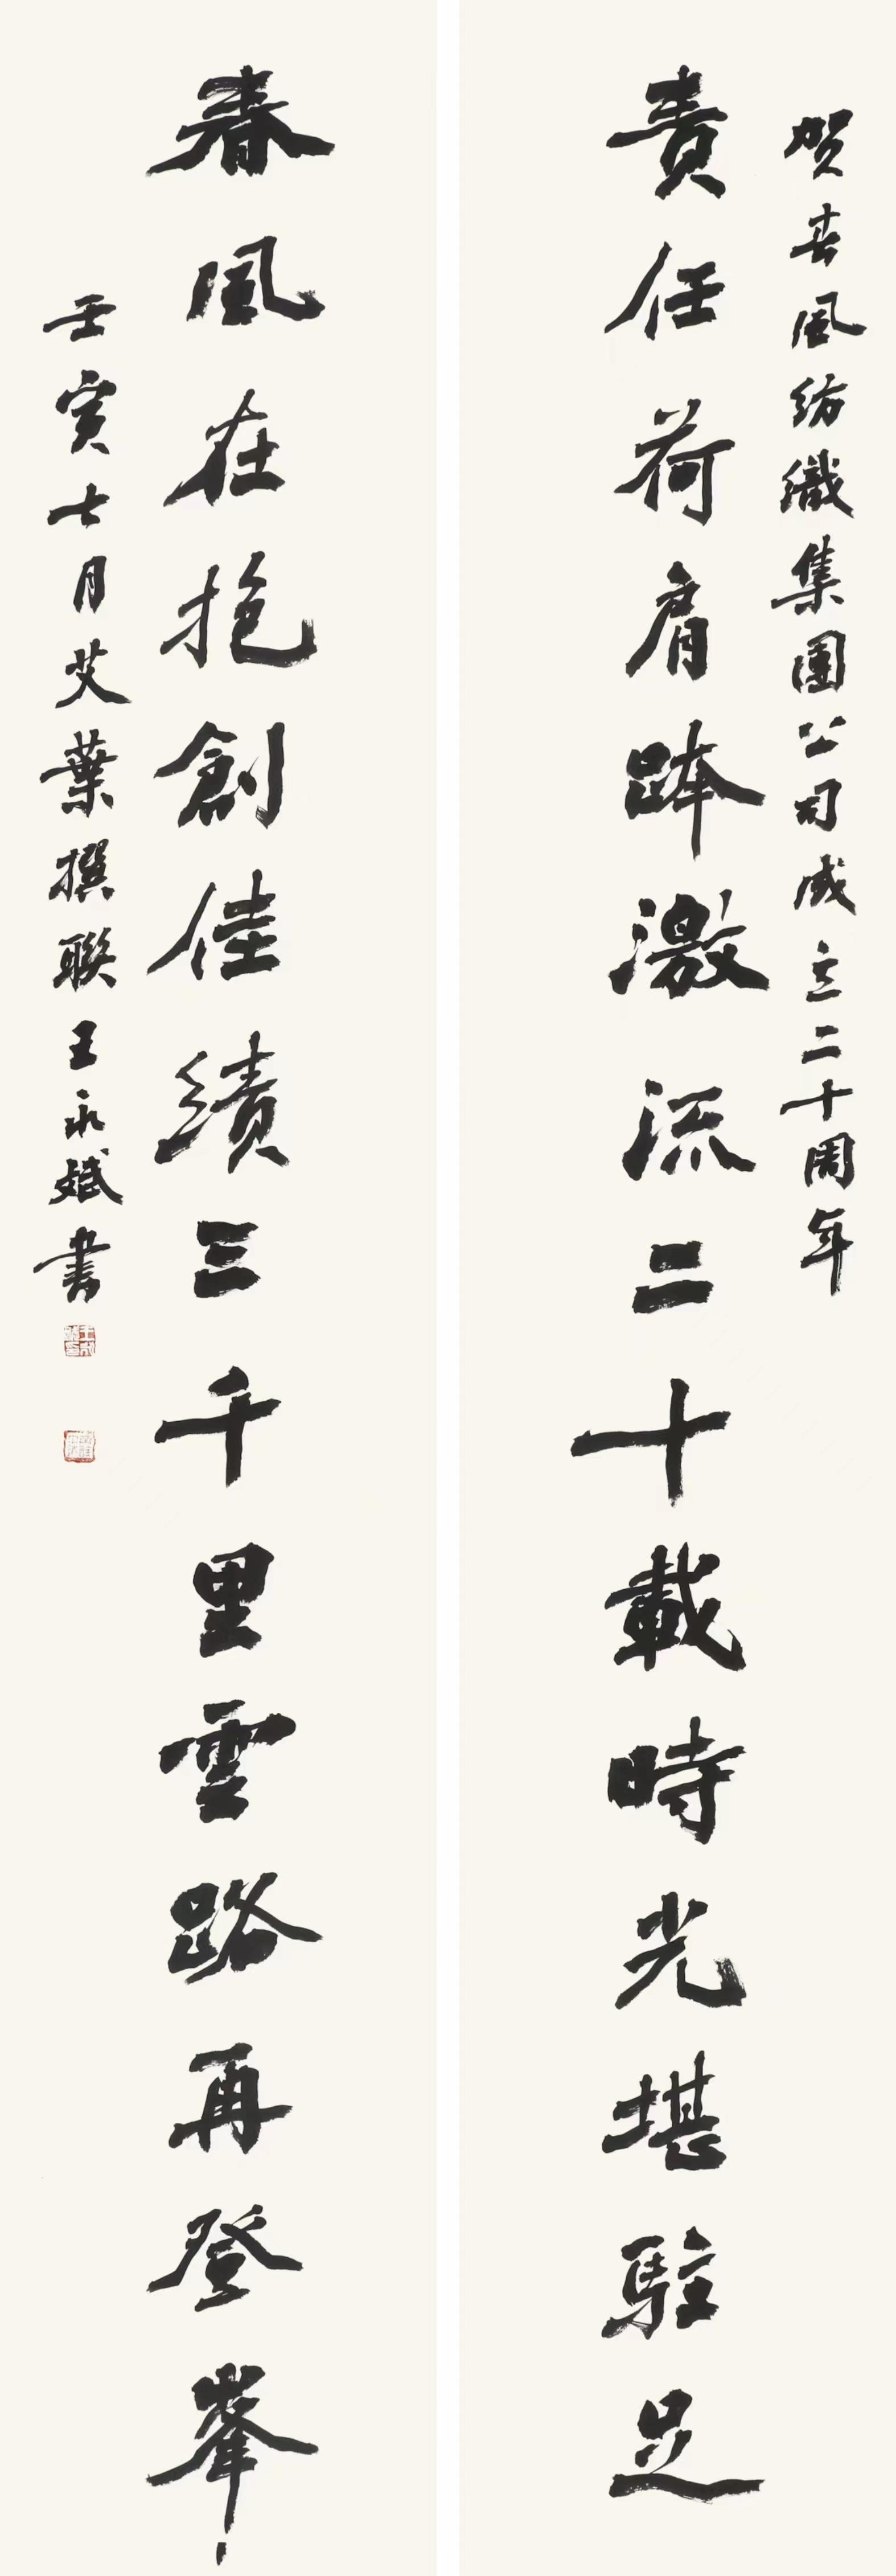 贺春風纺織集團公司成立二十周年
責任荷肩激流二十載時光堪駐足
春風在抱創佳績三千里雲路再登峯
壬寅七月艾葉撰聯王永斌書